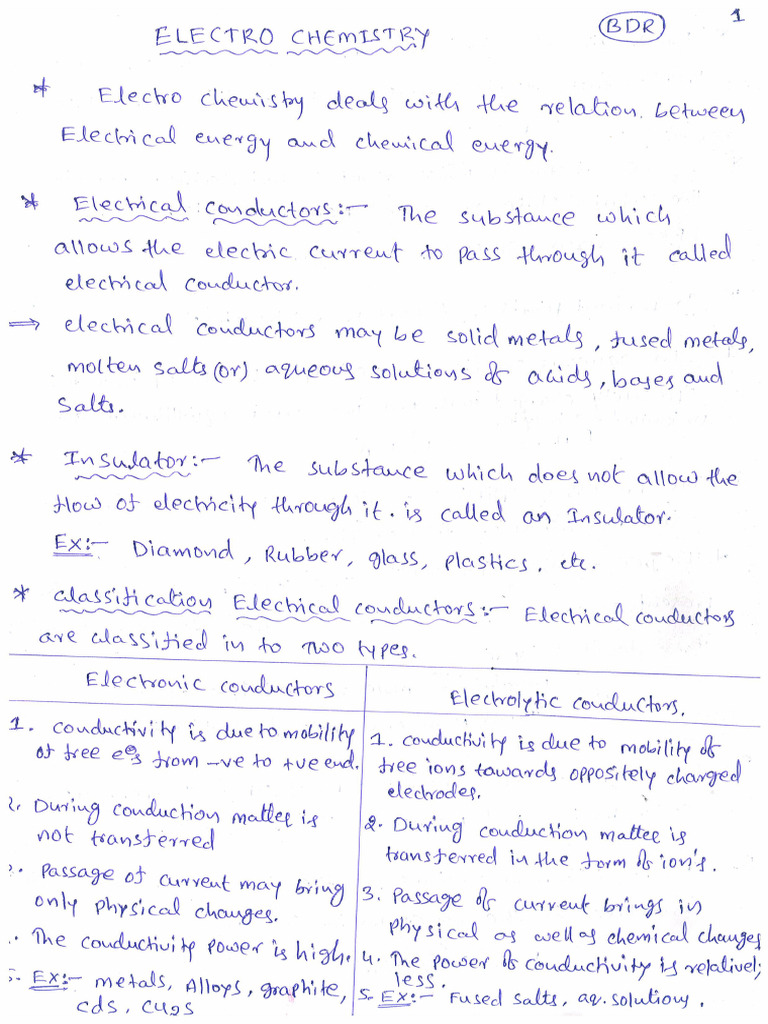 ELECTRO CHEMISTRY
BDR
1
* Electro chemistry deals with the relation between
Electrical energy and chemical energy.
* Electrical conductors:- The substance which
allows the electric current to pass through it called
electrical conductor.
⇒ electrical conductors may be solid metals, fused metals,
molten salts (or) aqueous solutions of acids, bases and
salts.
* Insulator:- The substance which does not allow the
flow of electricity through it. is called an Insulator.
Ex:- Diamond, Rubber, glass, plastics, etc.
* classification Electrical conductors:- Electrical conductors
are classified in to Two types.
Electronic conductors
1. conductivity is due to mobility
of free e⊖s from -ve to +ve end.
2. During conduction matter is
not transferred
3. Passage of current may bring
only physical changes.
4. The conductivity power is high.
5. Ex:- metals, Alloys, graphite,
cds, cu2s
Electrolytic conductors.
1. conductivity is due to mobility of
free ions towards oppositely charged
electrodes.
2. During conduction matter is
transferred in the form of ion's.
3. Passage of current brings in
physical as well as chemical changes
4. The power of conductivity is relatively
less.
5. Ex:- Fused salts, aq. solutions.